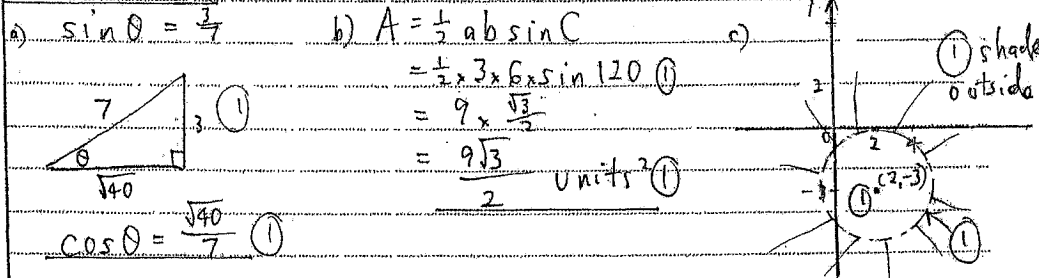 a) sin θ = 3/7
7
3 ①
θ
√40
cos θ = √40/7 ①
b) A = ½ ab sin C
= ½ × 3 × 6 × sin 120 ①
= 9 × √3/2
= 9√3/2 units² ①
c)
① shade
outside
2
0 2 4
(2,-3)
①
①